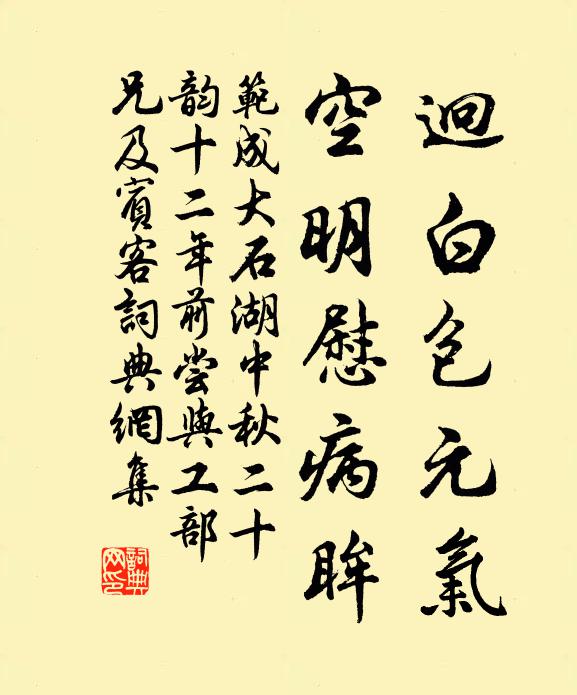 迥白包元氣
空明慰病眸
範成大石湖中秋二十
韵十二年前嘗與工部
兄及賓客詞典網集
詞典网印